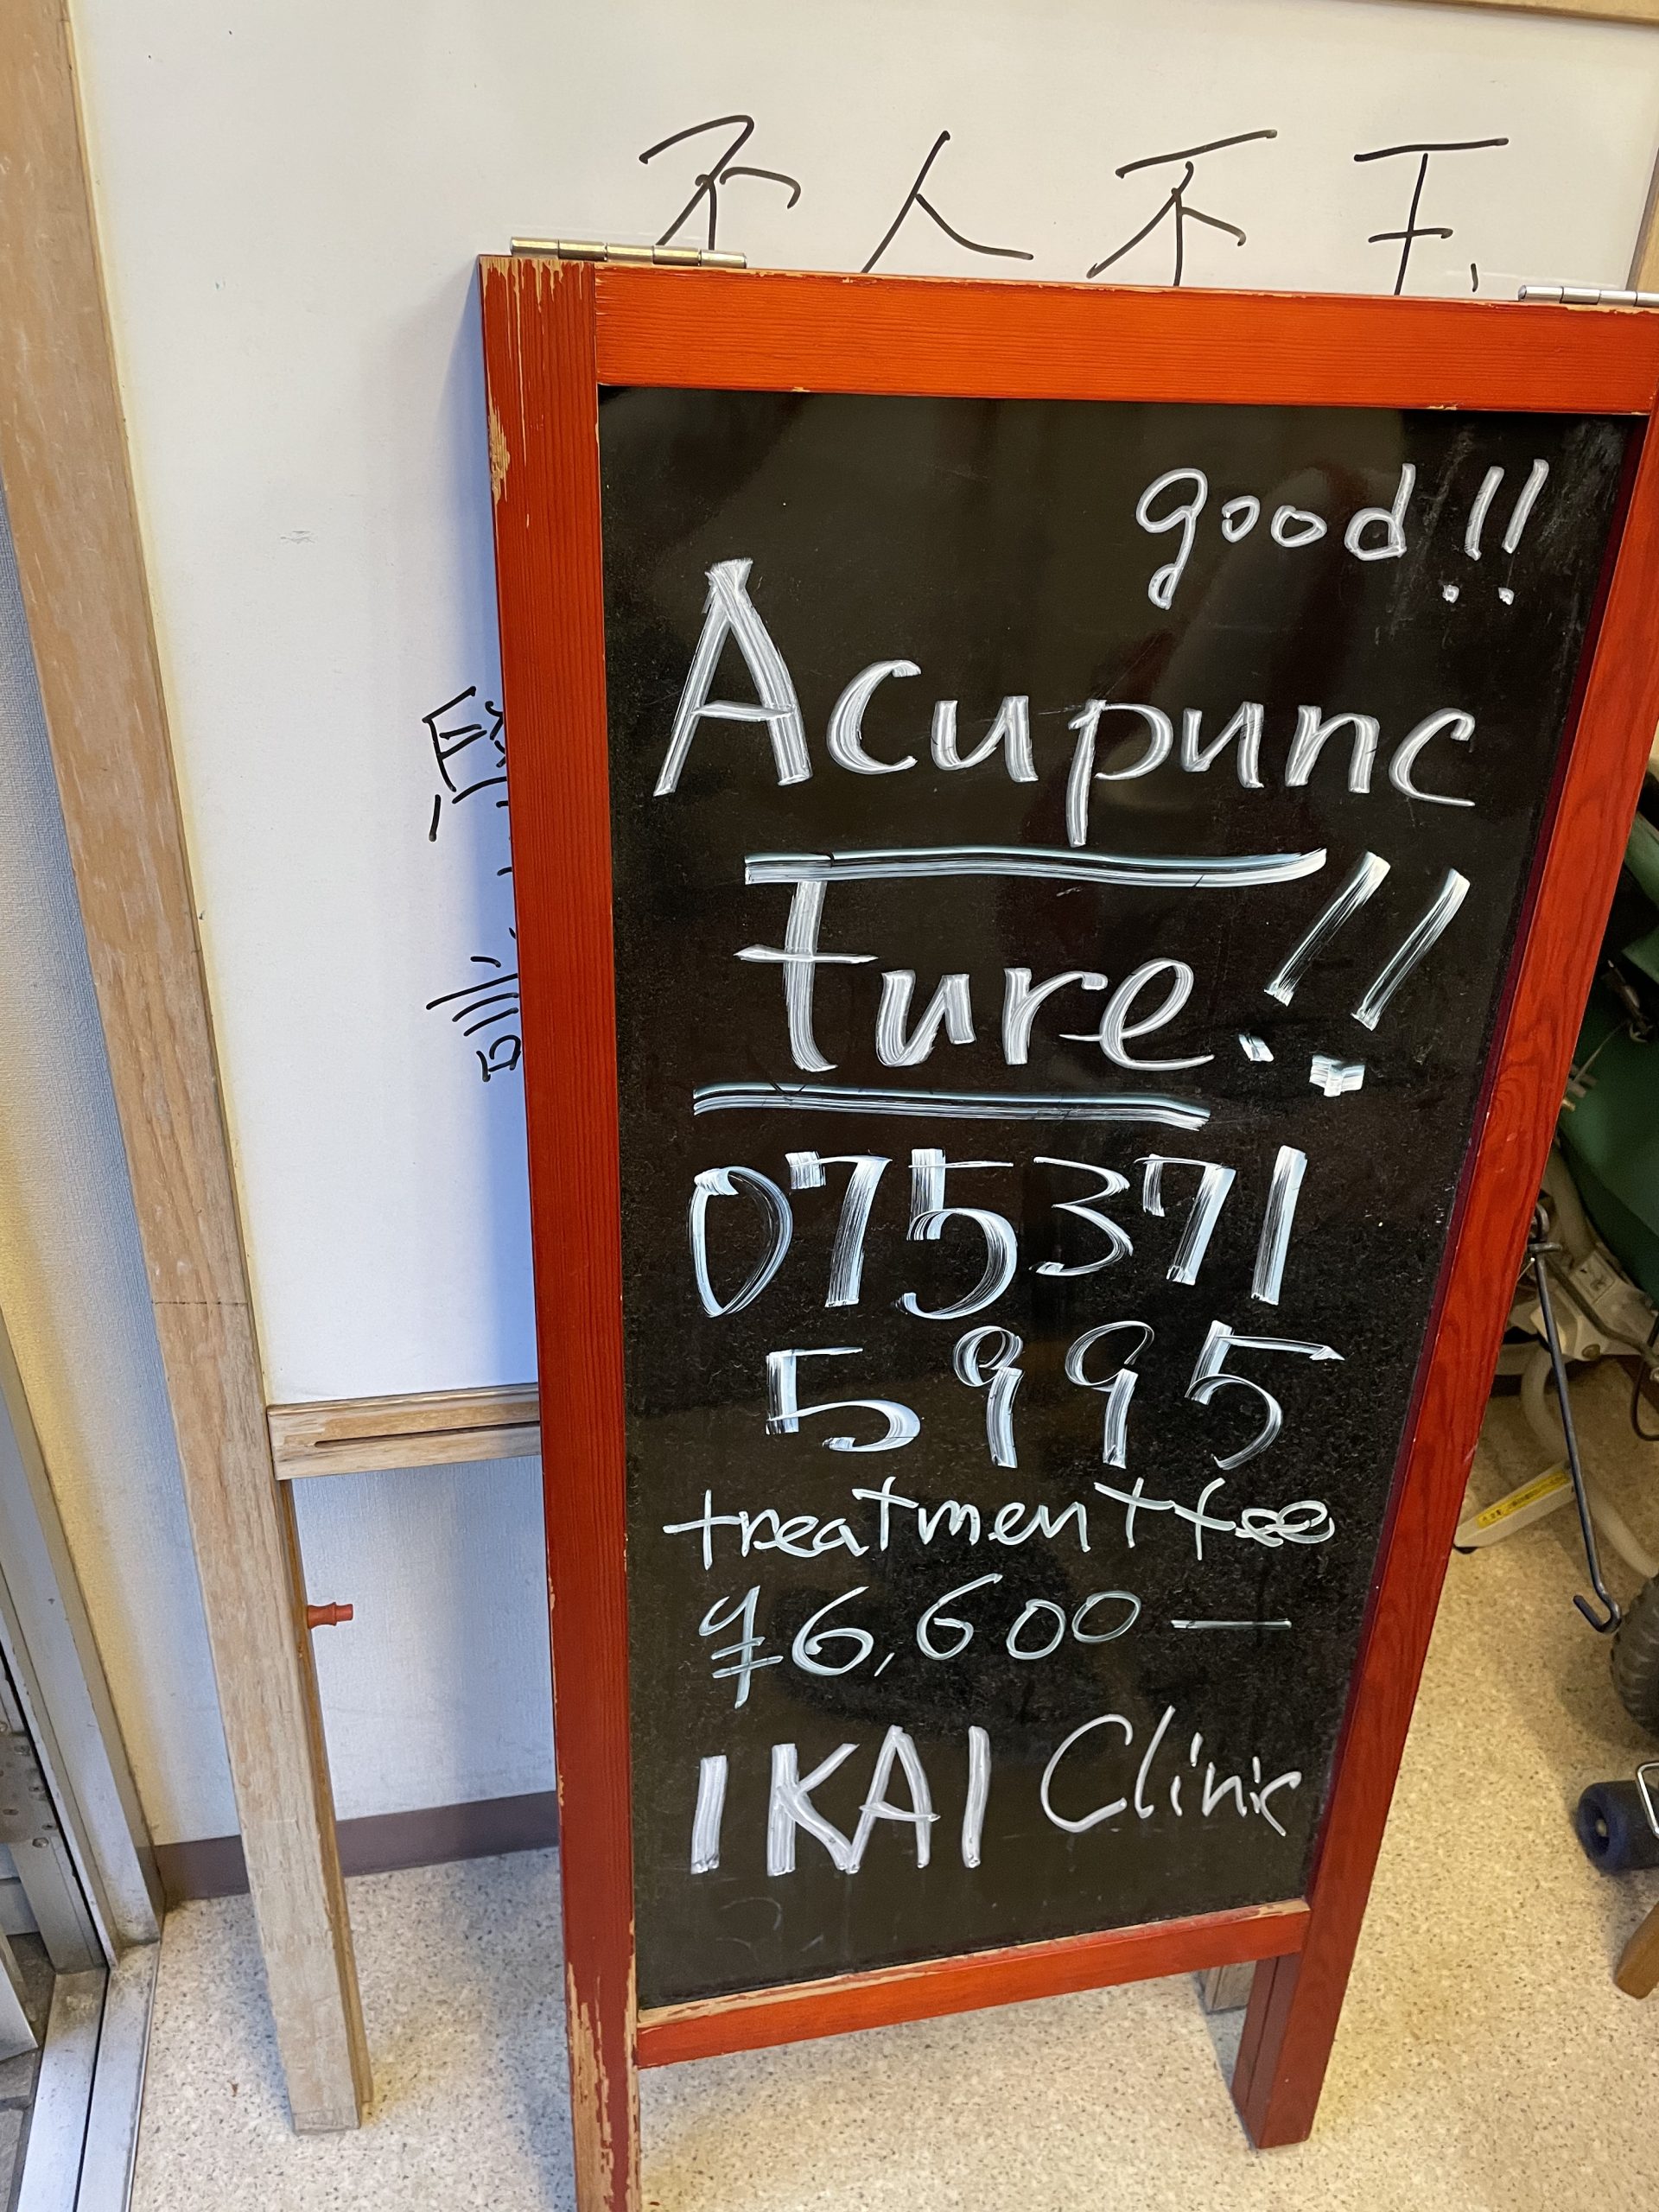 不人不下
good!!
Acupunc
ture!!
075371
5995
treatment fee
¥6,600—
IKAI Clinic